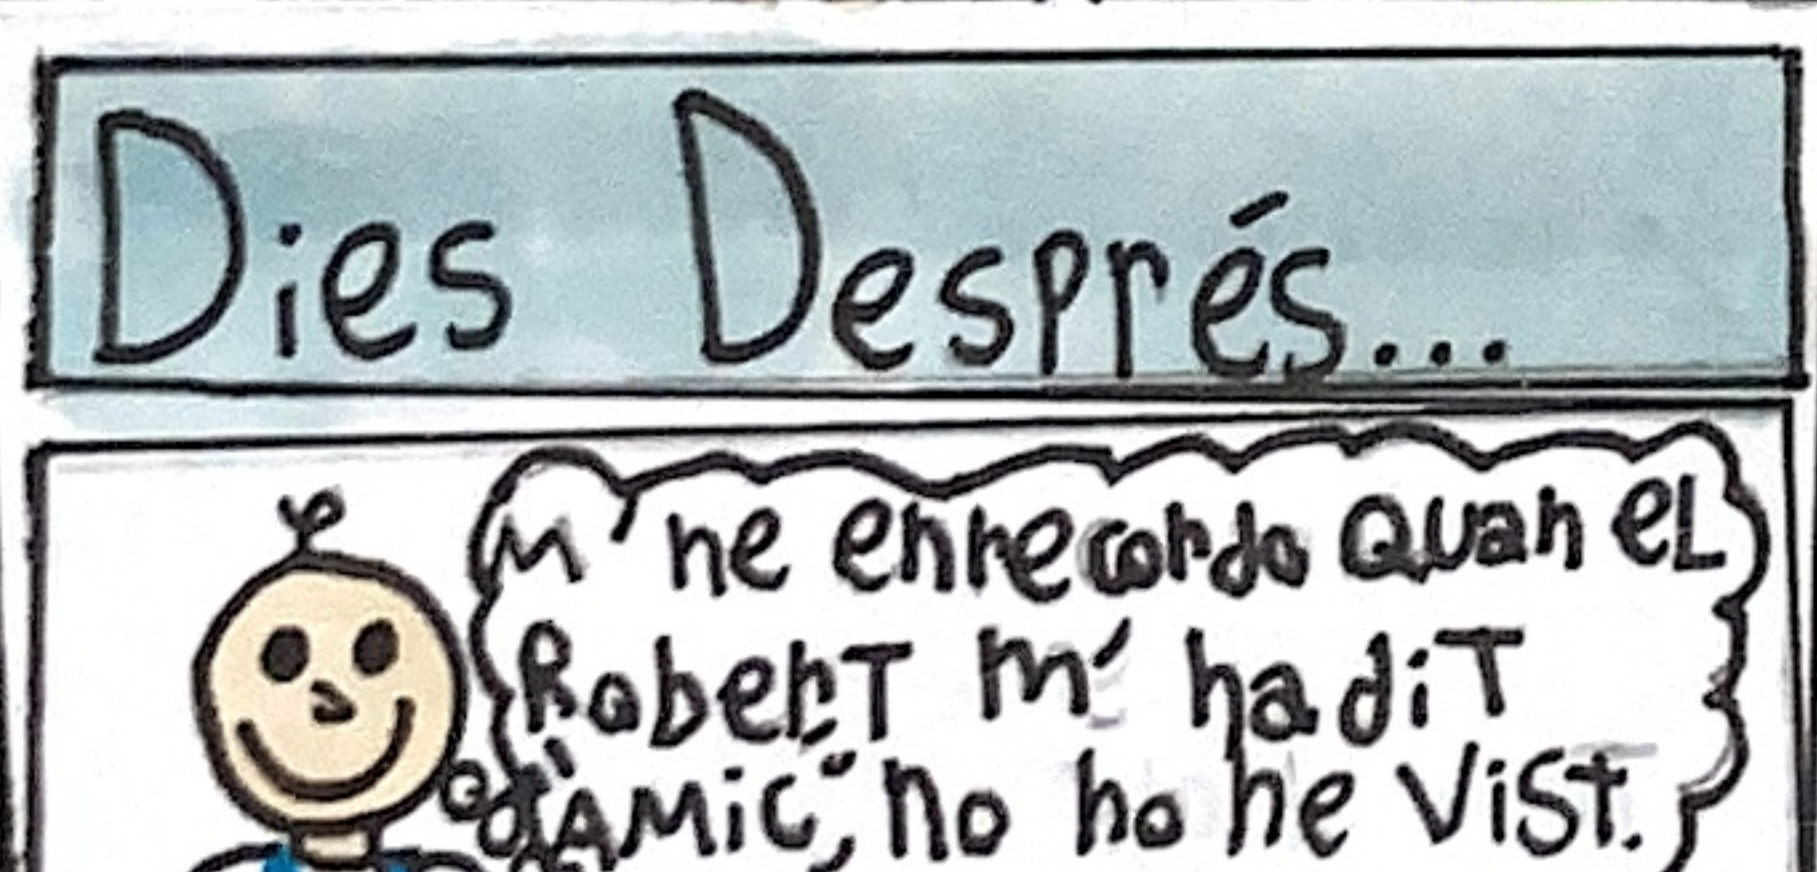 Dies Després...
M'he enrecordo quan el
Robert m' ha dit
"AMIC", no ho he vist.